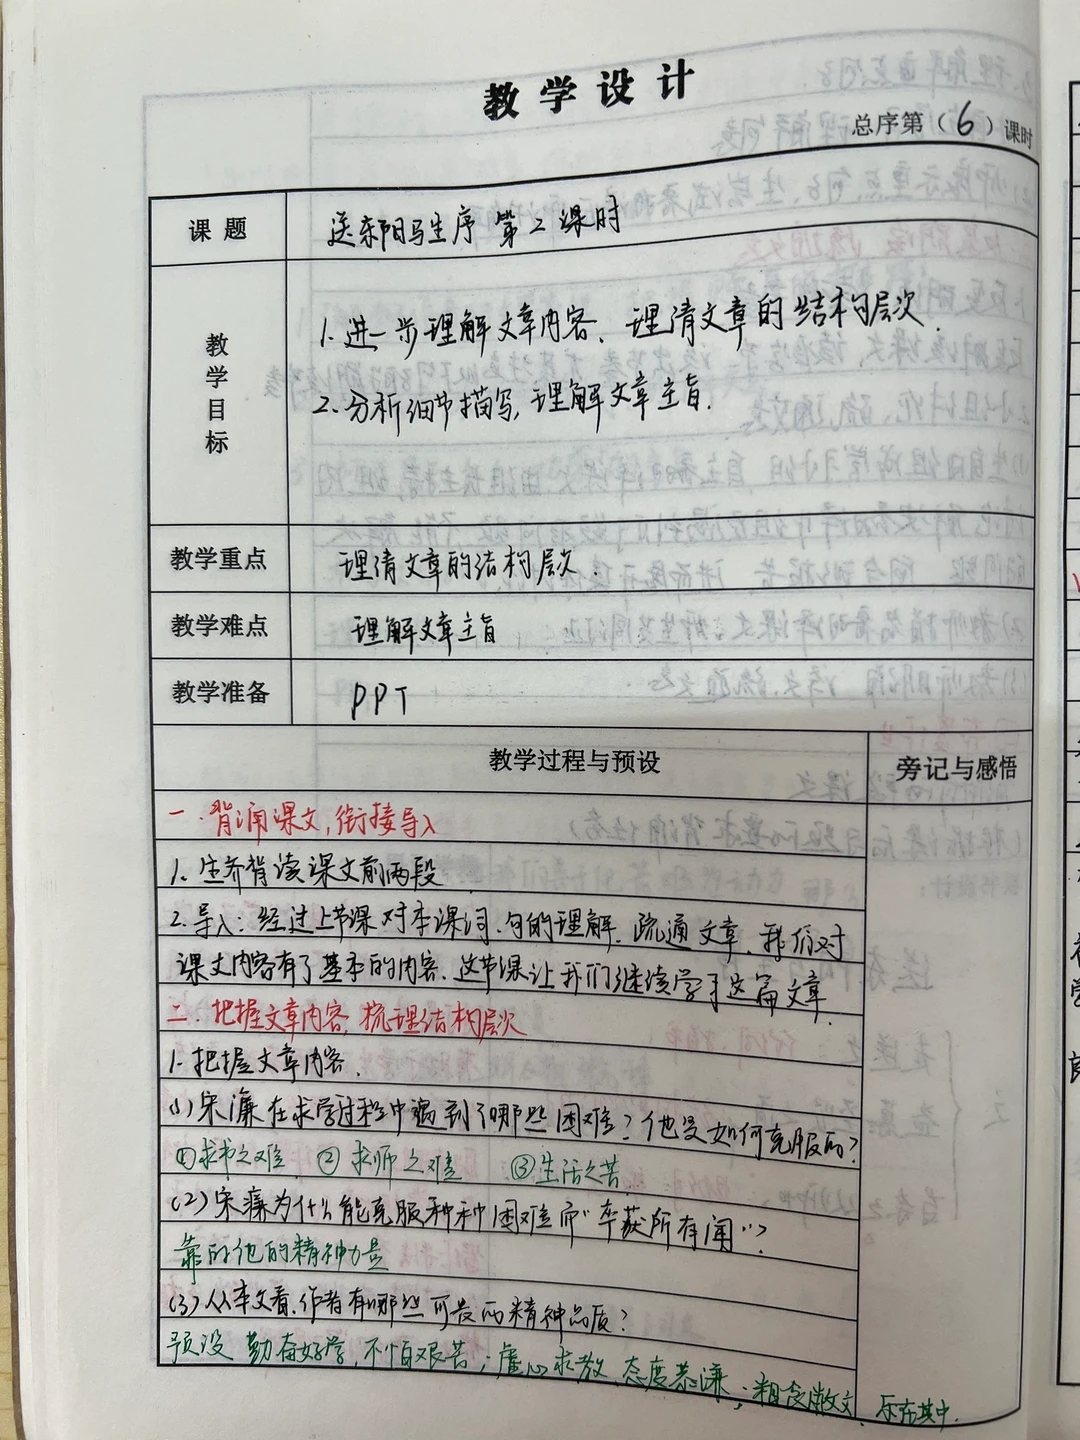 教学设计
总序第（6）课时
课题 送东阳马生序 第2课时
教学目标
1. 进一步理解文章内容、理清文章的结构层次.
2. 分析细节描写, 理解文章主旨.
教学重点 理清文章的结构层次.
教学难点 理解文章主旨
教学准备 PPT
教学过程与预设 旁记与感悟
一. 背诵课文, 衔接导入
1. 生齐背读课文前两段
2. 导入: 经过上节课对本课词、句的理解、疏通文章, 我们对
课文内容有了基本的内容. 这节课让我们继续学习这篇文章
二. 把握文章内容, 梳理结构层次
1. 把握文章内容.
(1) 宋濂在求学过程中遇到了哪些困难? 他是如何克服的?
①求书之难 ②求师之难 ③生活之苦
(2) 宋濂为什么能克服种种困难而“卒获所有闻”?
靠的他的精神力量
(3) 从本文看, 作者有哪些可贵的精神品质?
预设 勤奋好学, 不怕艰苦; 虚心求教, 态度恭谦; 粗衣 乐在其中.